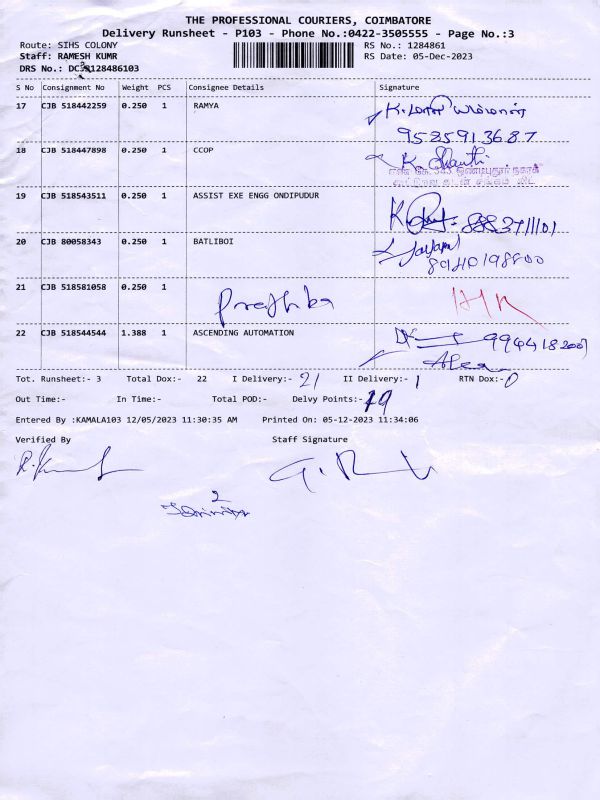 THE PROFESSIONAL COURIERS, COIMBATORE
Delivery Runsheet - P103 - Phone No.:0422-3505555 - Page No.:3
Route: SIHS COLONY RS No.: 1284861
Staff: RAMESH KUMR RS Date: 05-Dec-2023
DRS No.: 128486103
S No Consignment No Weight PCS Consignee Details Signature
17 CJB 518442259 0.250 1 RAMYA
9585913687
18 CJB 518447898 0.250 1 CCOP K. Shanthi
19 CJB 518543511 0.250 1 ASSIST EXE ENGG ONDIPUDUR
20 CJB 80058343 0.250 1 BATLIBOI
8940198800
21 CJB 518581058 0.250 1
22 CJB 518544544 1.388 1 ASCENDING AUTOMATION
Tot. Runsheet:- 3 Total Dox:- 22 I Delivery:- 21 II Delivery:- 1 RTN Dox:- 0
Out Time:- In Time:- Total POD:- Delvy Points:- 19
Entered By :KAMALA103 12/05/2023 11:30:35 AM Printed On: 05-12-2023 11:34:06
Verified By Staff Signature
2